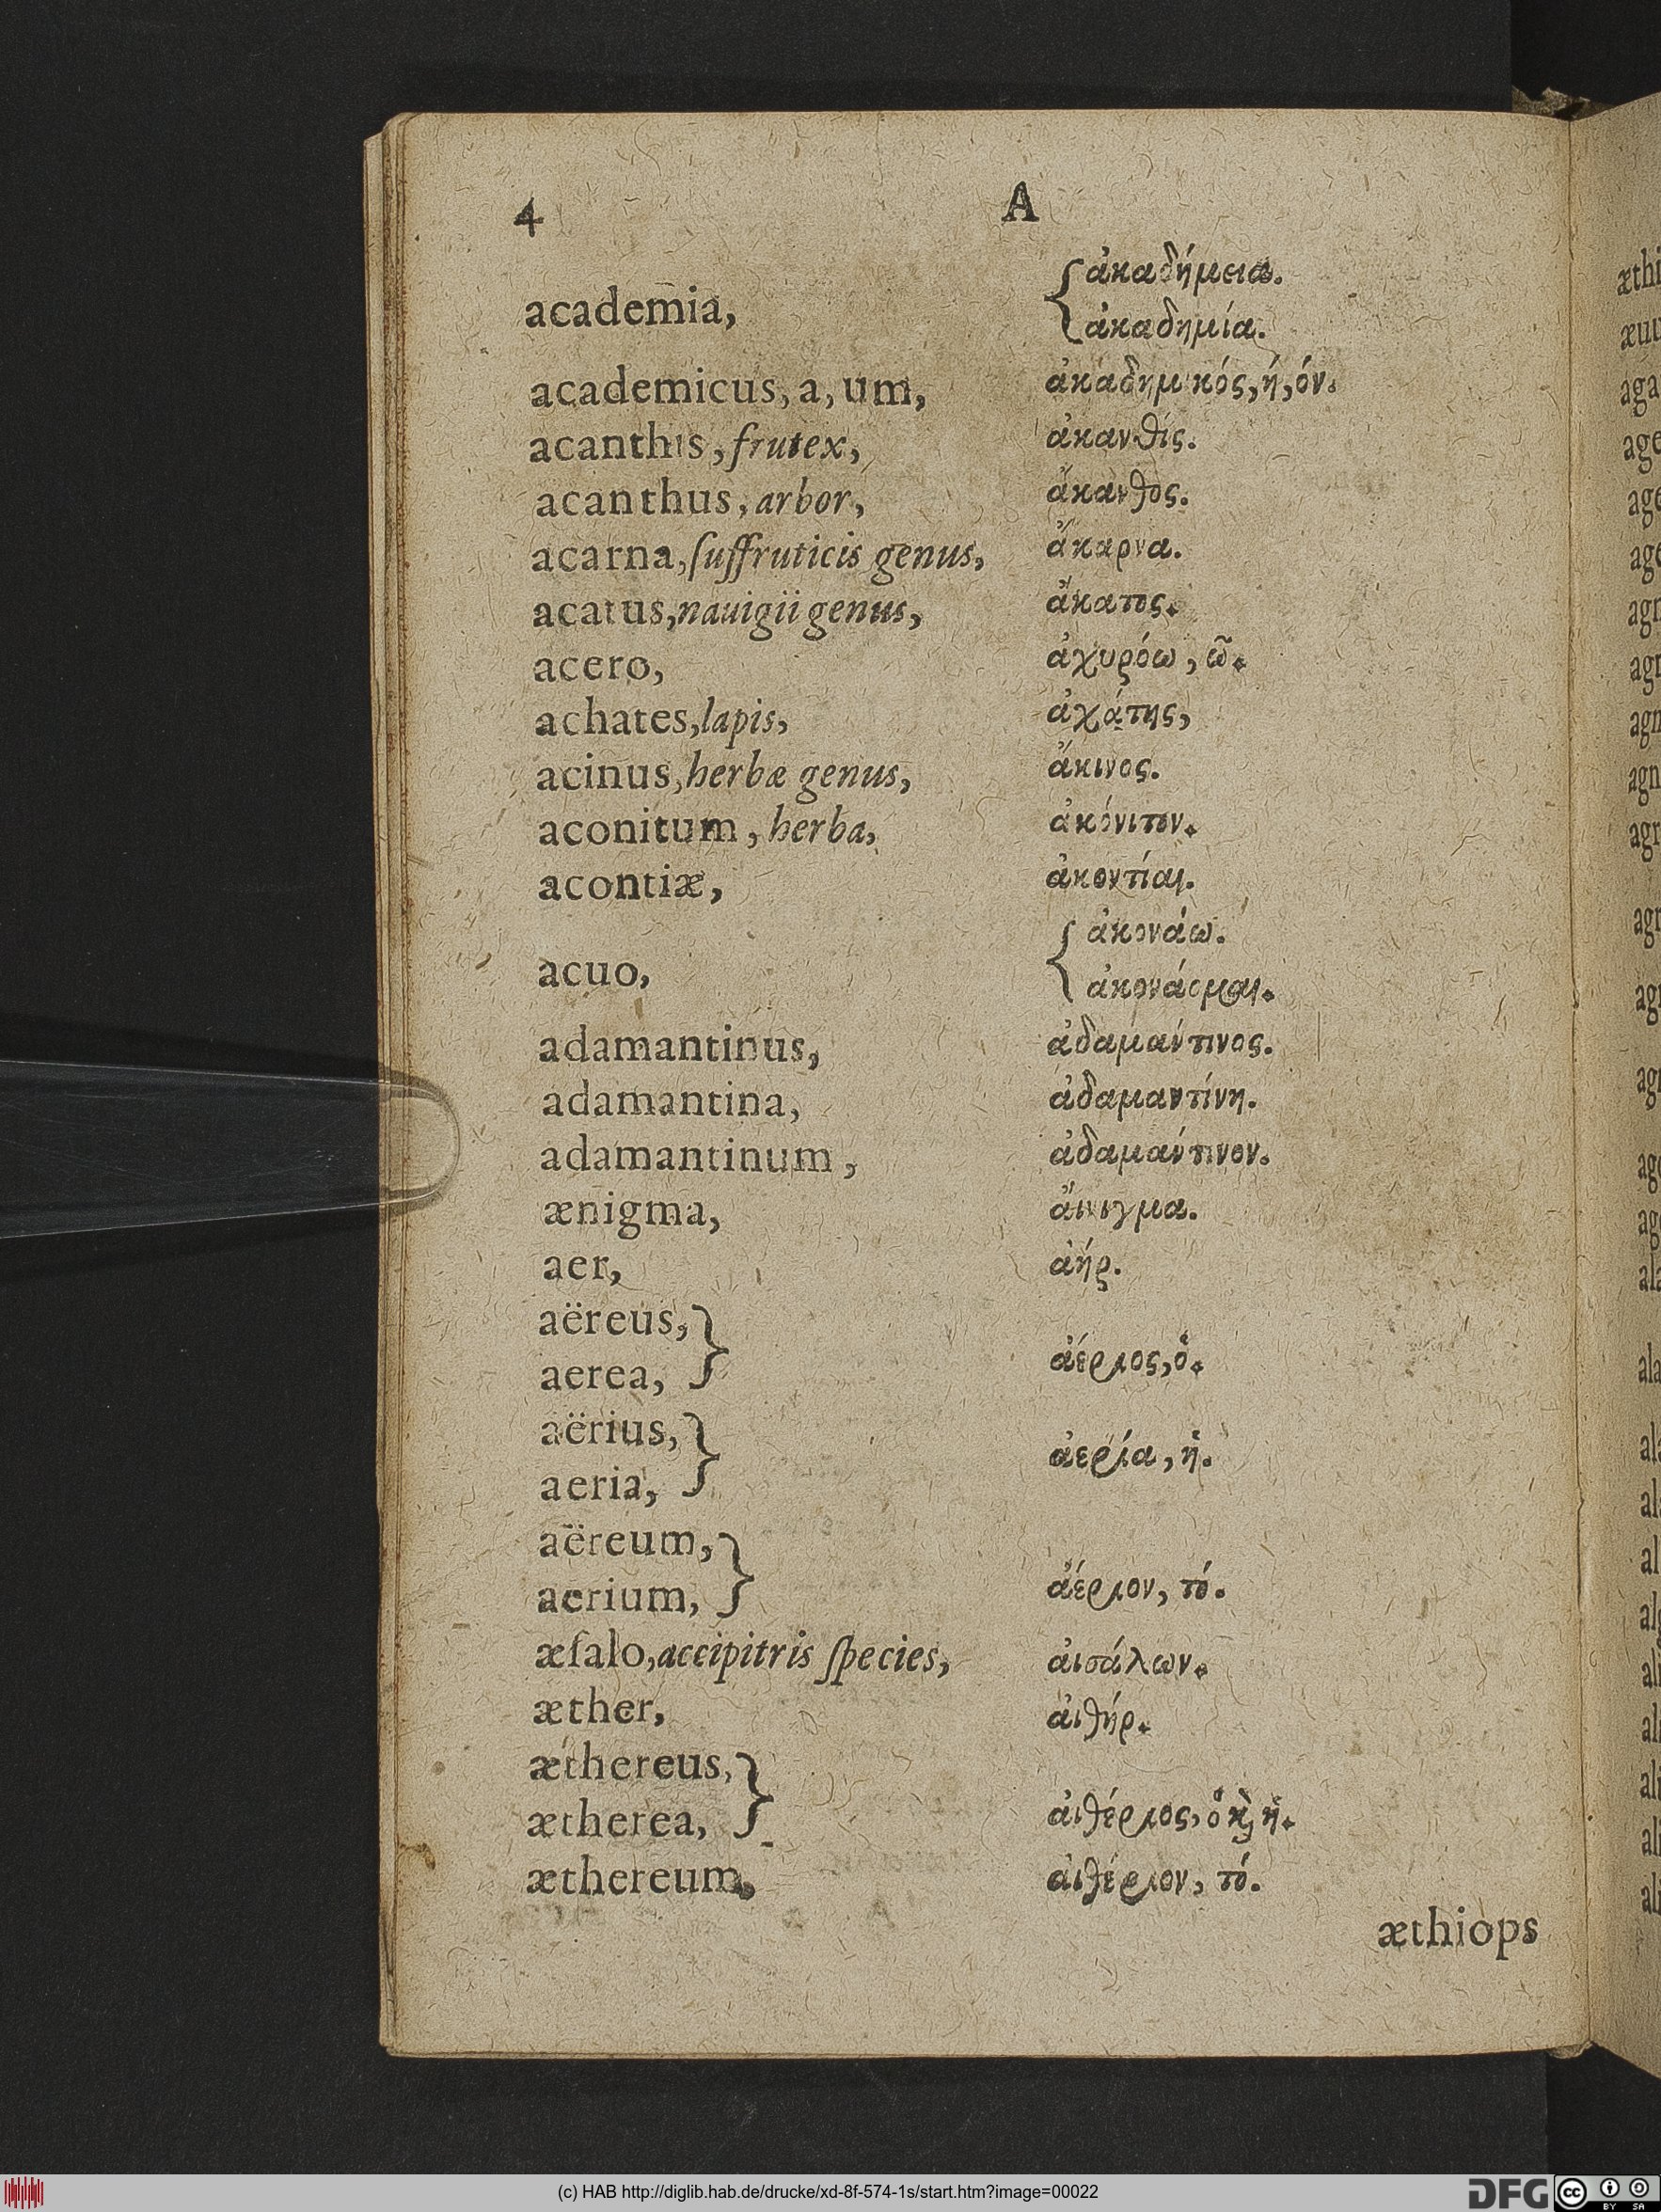 4 A
academia, { ἀκαδήμεια.
ἀκαδημία.
academicus, a, um, ἀκαδημικός, ή, όν.
acanthis, frutex, ἀκανθίς.
acanthus, arbor, ἄκανθος.
acarna, ſuffruticis genus, ἄκαρνα.
acatus, nauigii genus, ἄκατος.
acero, ἀχυρόω, ῶ.
achates, lapis, ἀχάτης,
acinus, herbæ genus, ἄκινος.
aconitum, herba, ἀκόνιτον.
acontiæ, ἀκοντίαι.
acuo, { ἀκονάω.
ἀκονάομαι.
adamantinus, ἀδαμάντινος.
adamantina, ἀδαμαντίνη.
adamantinum, ἀδαμάντινον.
ænigma, ἄινιγμα.
aer, ἀήρ.
aëreus, }
aerea, ἀέριος, ὁ.
aërius, }
aeria, ἀερία, ἡ.
aëreum, }
aerium, ἀέριον, τό.
æſalo, accipitris ſpecies, ἀισάλων.
æther, ἀιθήρ.
æthereus, }
ætherea, ἀιθέριος, ὁ ϗ ἡ.
æthereum, ἀιθέριον, τό.
æthiops
(c) HAB http://diglib.hab.de/drucke/xd-8f-574-1s/start.htm?image=00022
DFG
cc BY SA